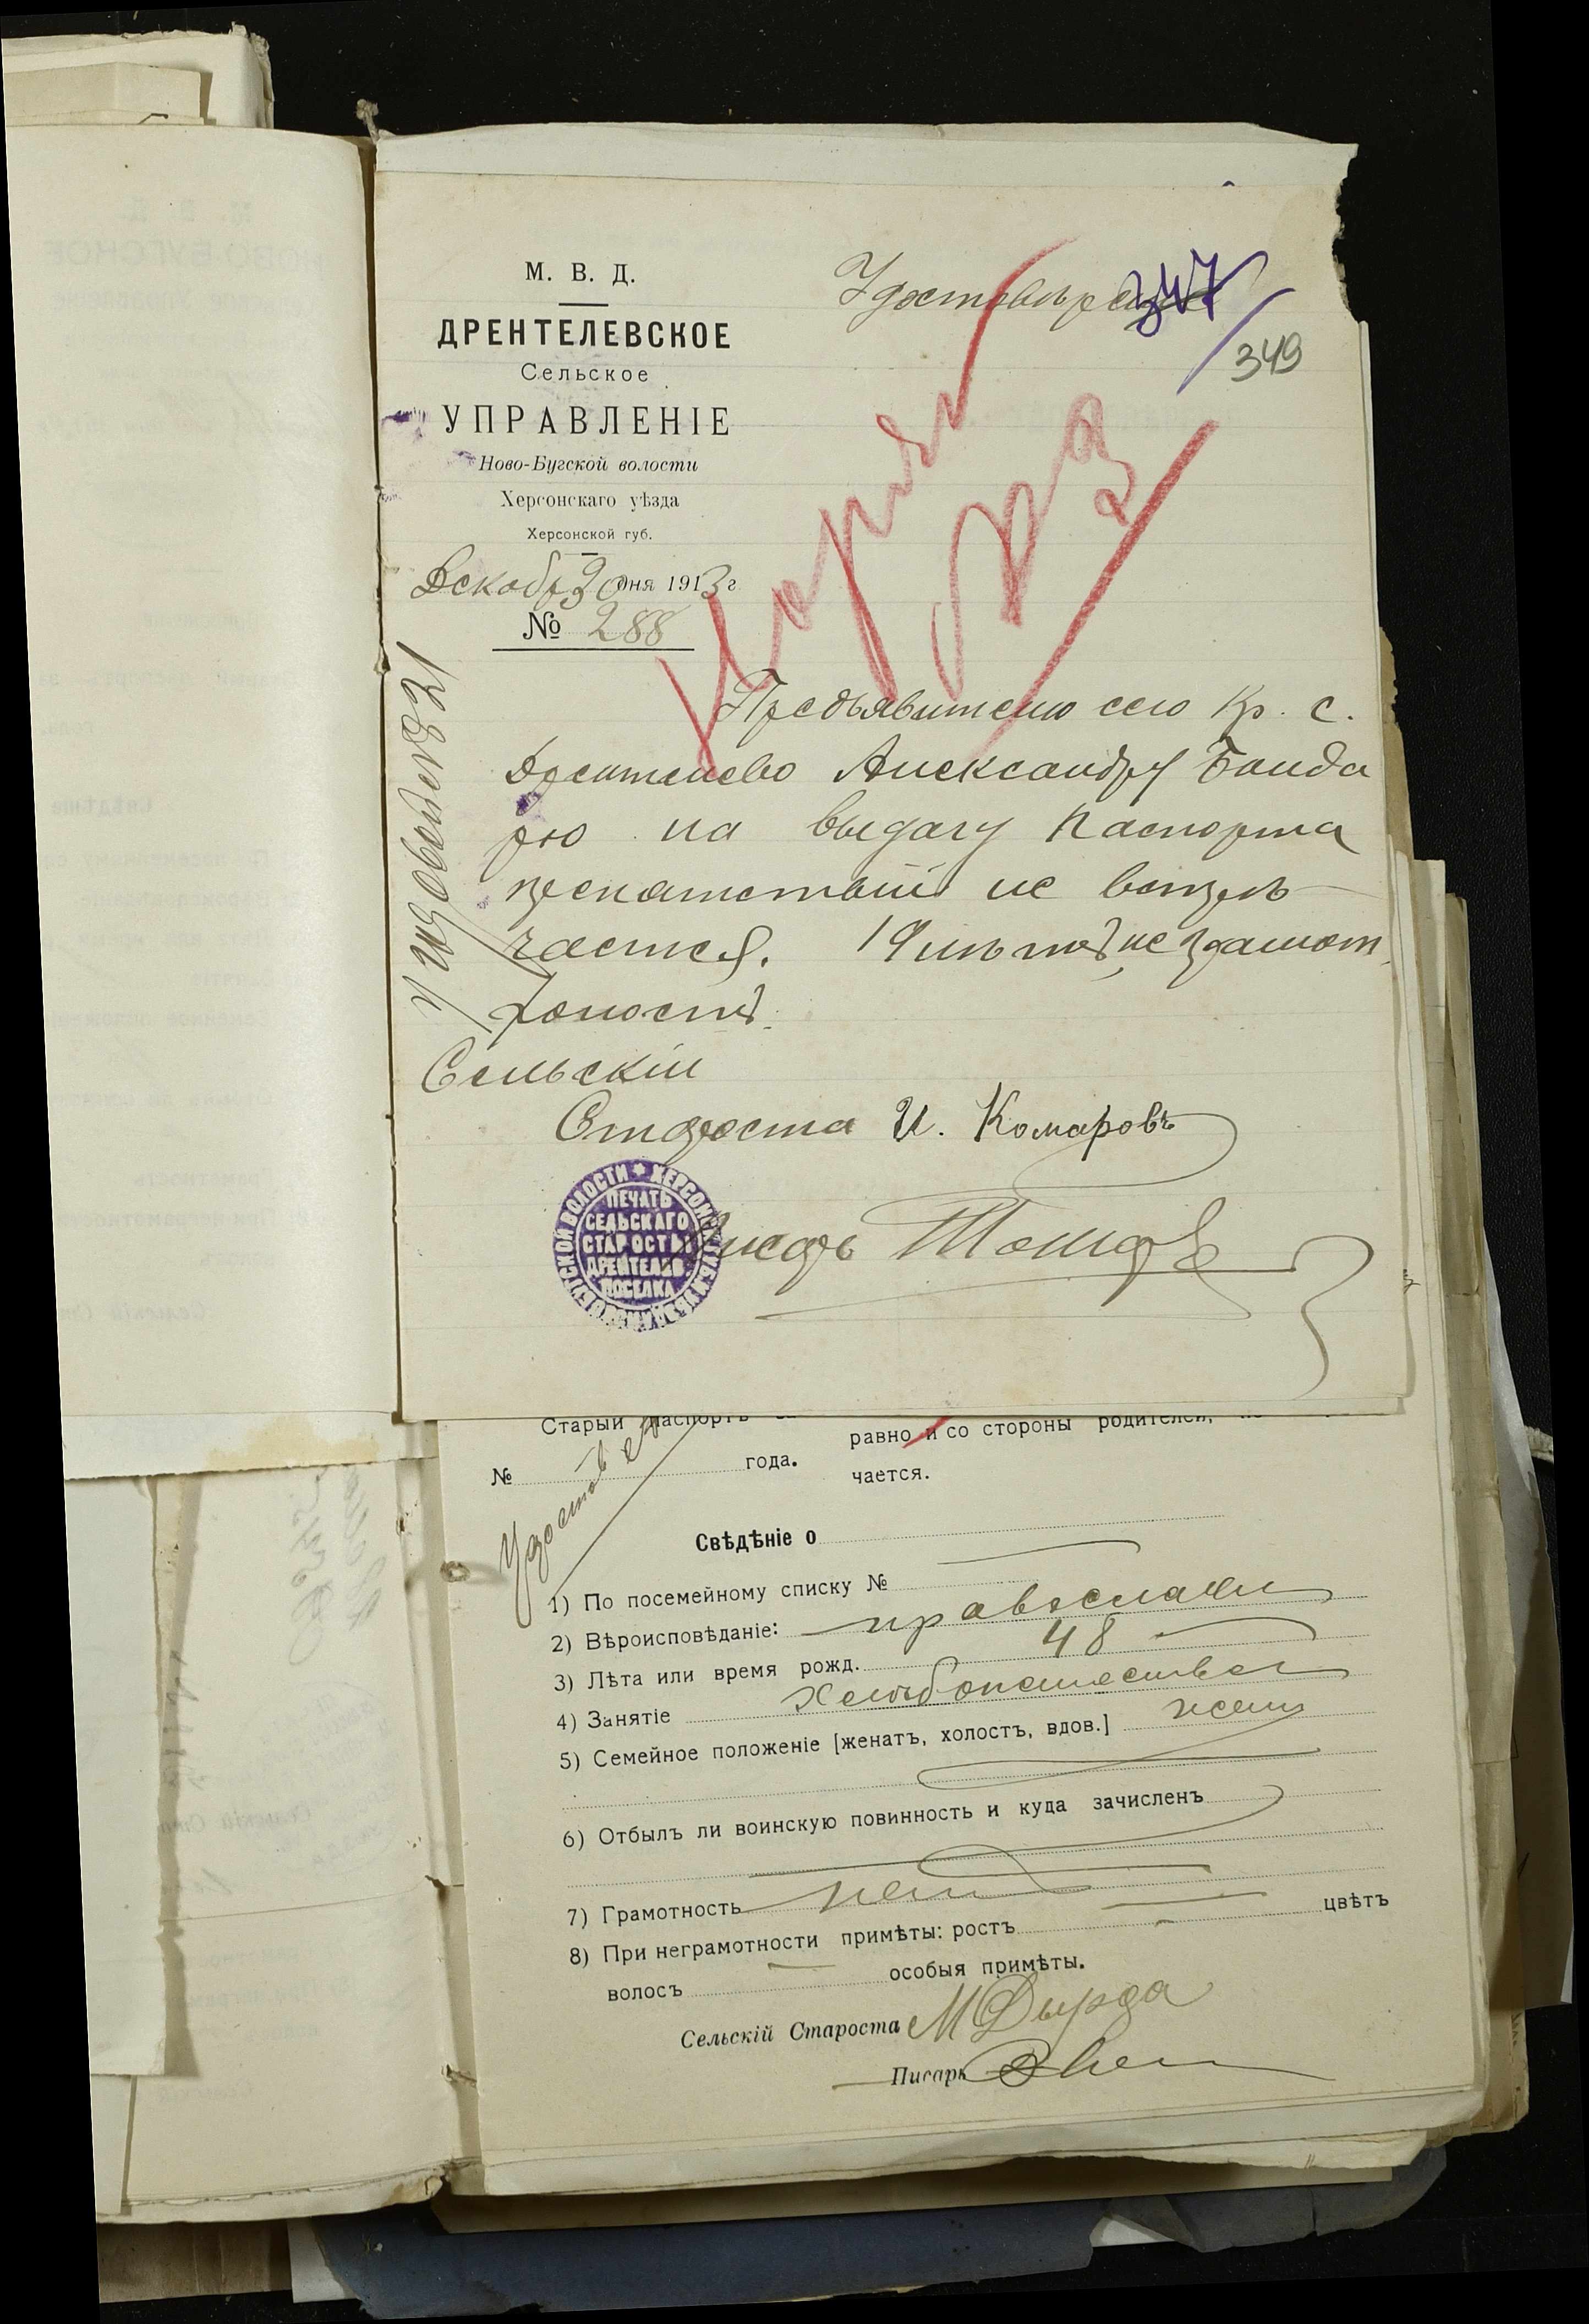 М. В. Д.
ДРЕНТЕЛЕВСКОЕ
Сельское
УПРАВЛЕНІЕ
Ново-Бугской волости
Херсонскаго уѣзда
Херсонской губ.
Декабр 30 дня 1913 г.
№ 288
347
349
Предъявителю сего Кр. с.
Дрентелево Александру Бонда
рю на выдачу паспорта
препятствий не встрѣ
чается. 19 лѣтъ, неграмот.
холостъ.
Сельскій
Староста И. Комаровъ
Писарь
ПЕЧАТЬ
СЕЛЬСКАГО
СТАРОСТЫ
ДРЕНТЕЛЕВ.
ПОСЕЛКА
Старый паспортъ
равно и со стороны родителей,
№ года.
чается.
Удостов
Свѣдѣніе о
1) По посемейному списку №
2) Вѣроисповѣданіе: православн
3) Лѣта или время рожд. 48
4) Занятіе Хлѣбопашество
5) Семейное положеніе [женатъ, холостъ, вдов.] жен
6) Отбылъ ли воинскую повинность и куда зачисленъ
7) Грамотность нетъ
8) При неграмотности примѣты: ростъ цвѣтъ
волосъ особыя примѣты.
Сельскій Староста М Дырда
Писарь